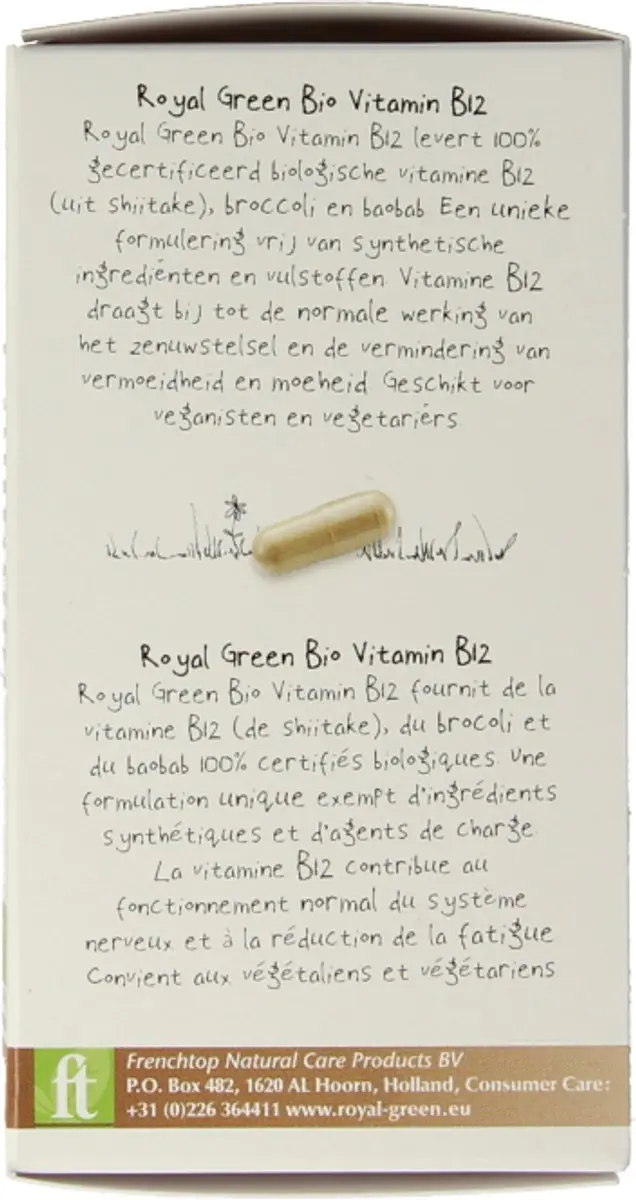 Royal Green Bio Vitamin B12
Royal Green Bio Vitamin B12 levert 100%
gecertificeerd biologische vitamine B12
(uit shiitake), broccoli en baobab Een unieke
formulering vrij van synthetische
ingrediënten en vulstoffen Vitamine B12
draagt bij tot de normale werking van
het zenuwstelsel en de vermindering van
vermoeidheid en moeheid Geschikt voor
veganisten en vegetariërs
Royal Green Bio Vitamin B12
Royal Green Bio Vitamin B12 fournit de la
vitamine B12 (de shiitake), du brocoli et
du baobab 100% certifiés biologiques Une
formulation unique exempt d'ingrédients
synthétiques et d'agents de charge
La vitamine B12 contribue au
fonctionnement normal du système
nerveux et à la réduction de la fatigue
Convient aux végétaliens et végétariens
ft
Frenchtop Natural Care Products BV
P.O. Box 482, 1620 AL Hoorn, Holland, Consumer Care:
+31 (0)226 364411 www.royal-green.eu